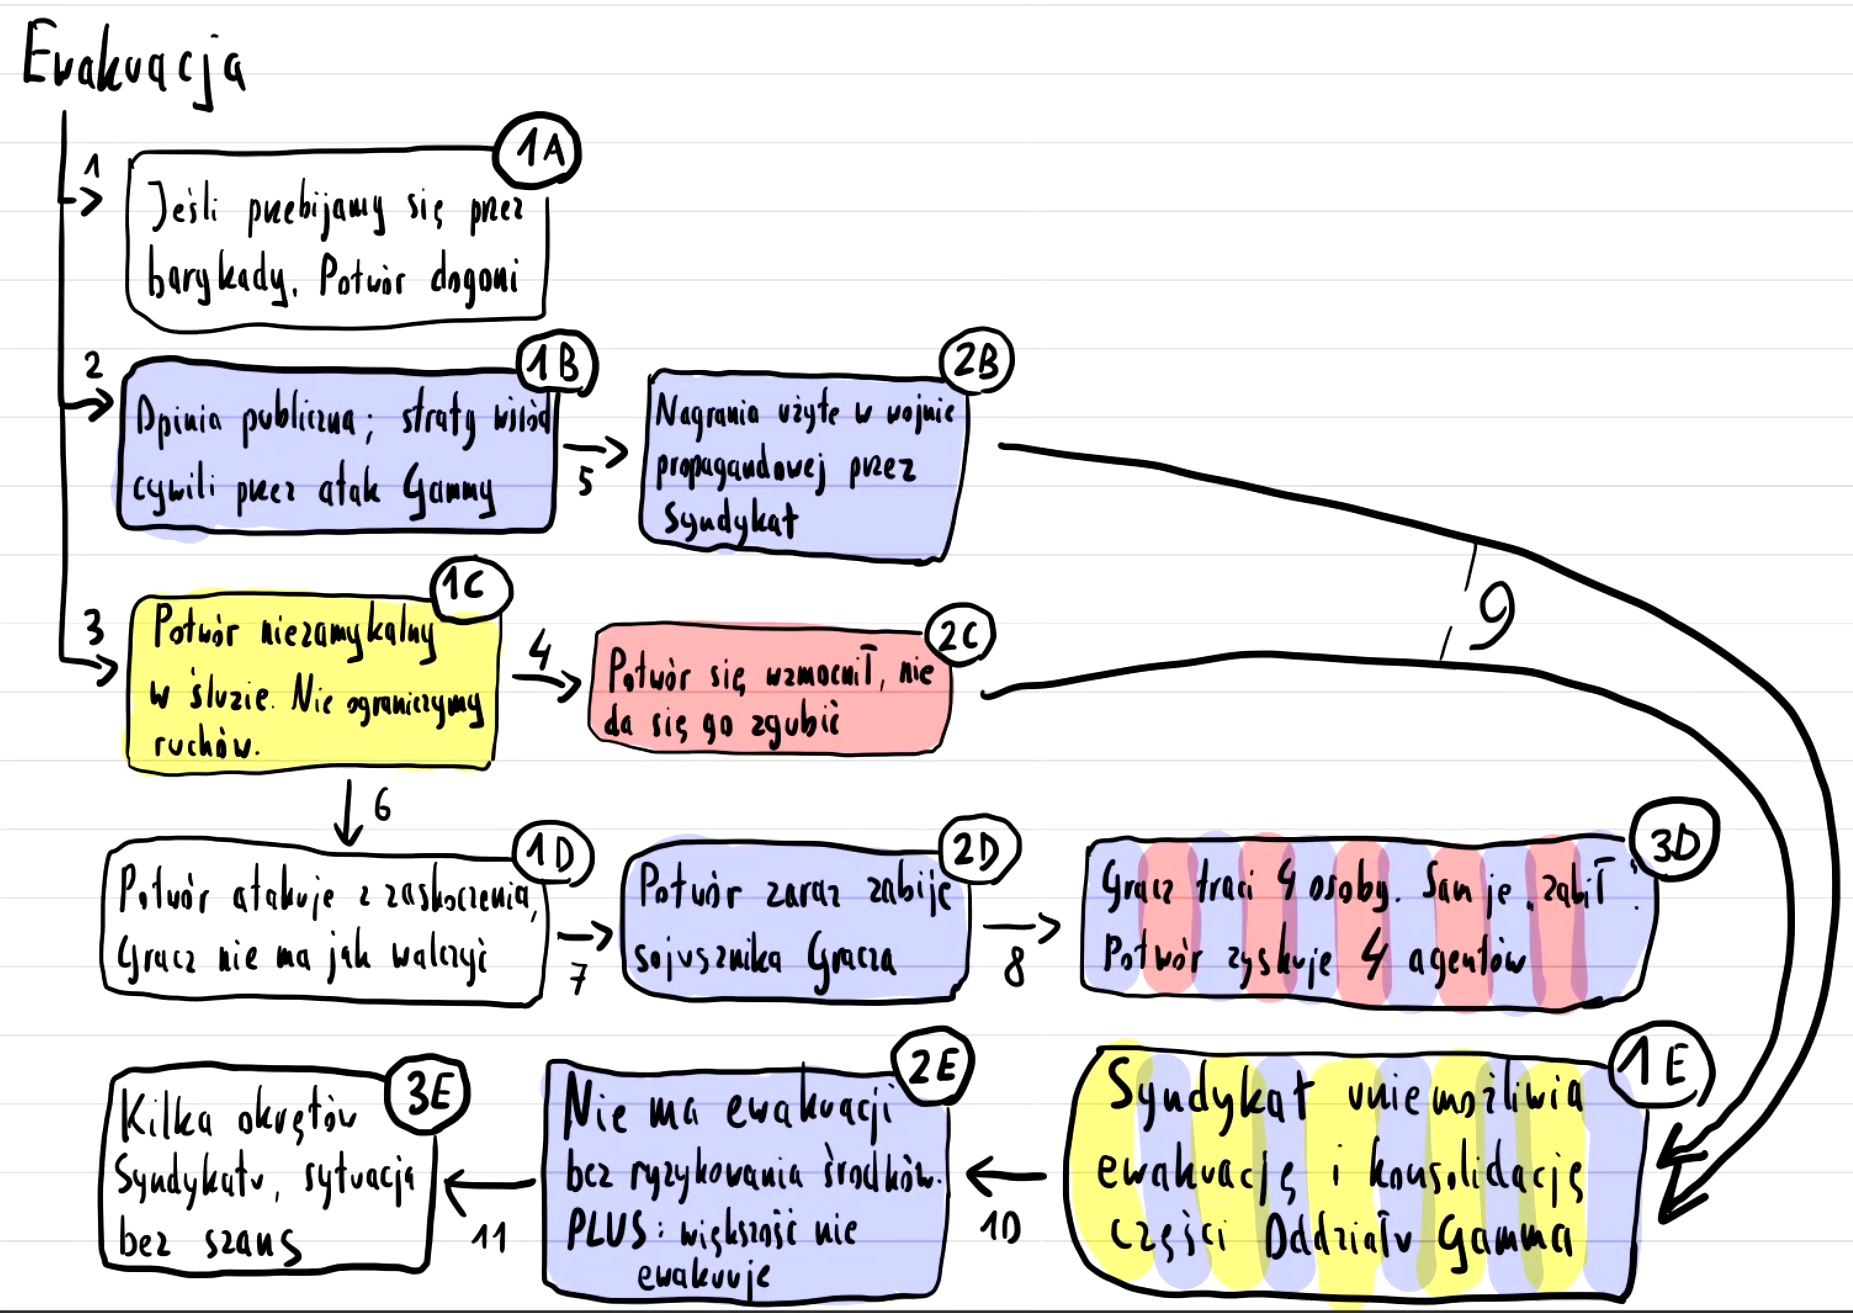 Ewakuacja
1
1A
Jeśli przebijamy się przez
barykady. Potwór dogoni
2
1B
Opinia publiczna; straty wśród
cywili przez atak Gammy
5
2B
Nagrania użyte w wojnie
propagandowej przez
Syndykat
3
1C
Potwór niezamykalny
w śluzie. Nie ograniczymy
ruchów.
4
2C
Potwór się wzmocnił, nie
da się go zgubić
9
6
1D
Potwór atakuje z zaskoczenia,
Gracz nie ma jak walczyć
7
2D
Potwór zaraz zabije
sojusznika Gracza
8
3D
Gracz traci 4 osoby. Sam je „zabił”.
Potwór zyskuje 4 agentów
1E
Syndykat uniemożliwia
ewakuację i konsolidację
części Oddziału Gamma
10
2E
Nie ma ewakuacji
bez ryzykowania środków.
PLUS: większość nie
ewakuuje
11
3E
Kilka okrętów
Syndykatu, sytuacja
bez szans